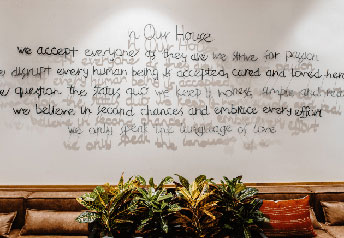 in Our House
we accept everyone as they are we strive for passion
disrupt every human being is accepted, cared and loved here
question the status quo we keep honest, simple and
we believe in second chances and embrace every effort
we only speak the language of love